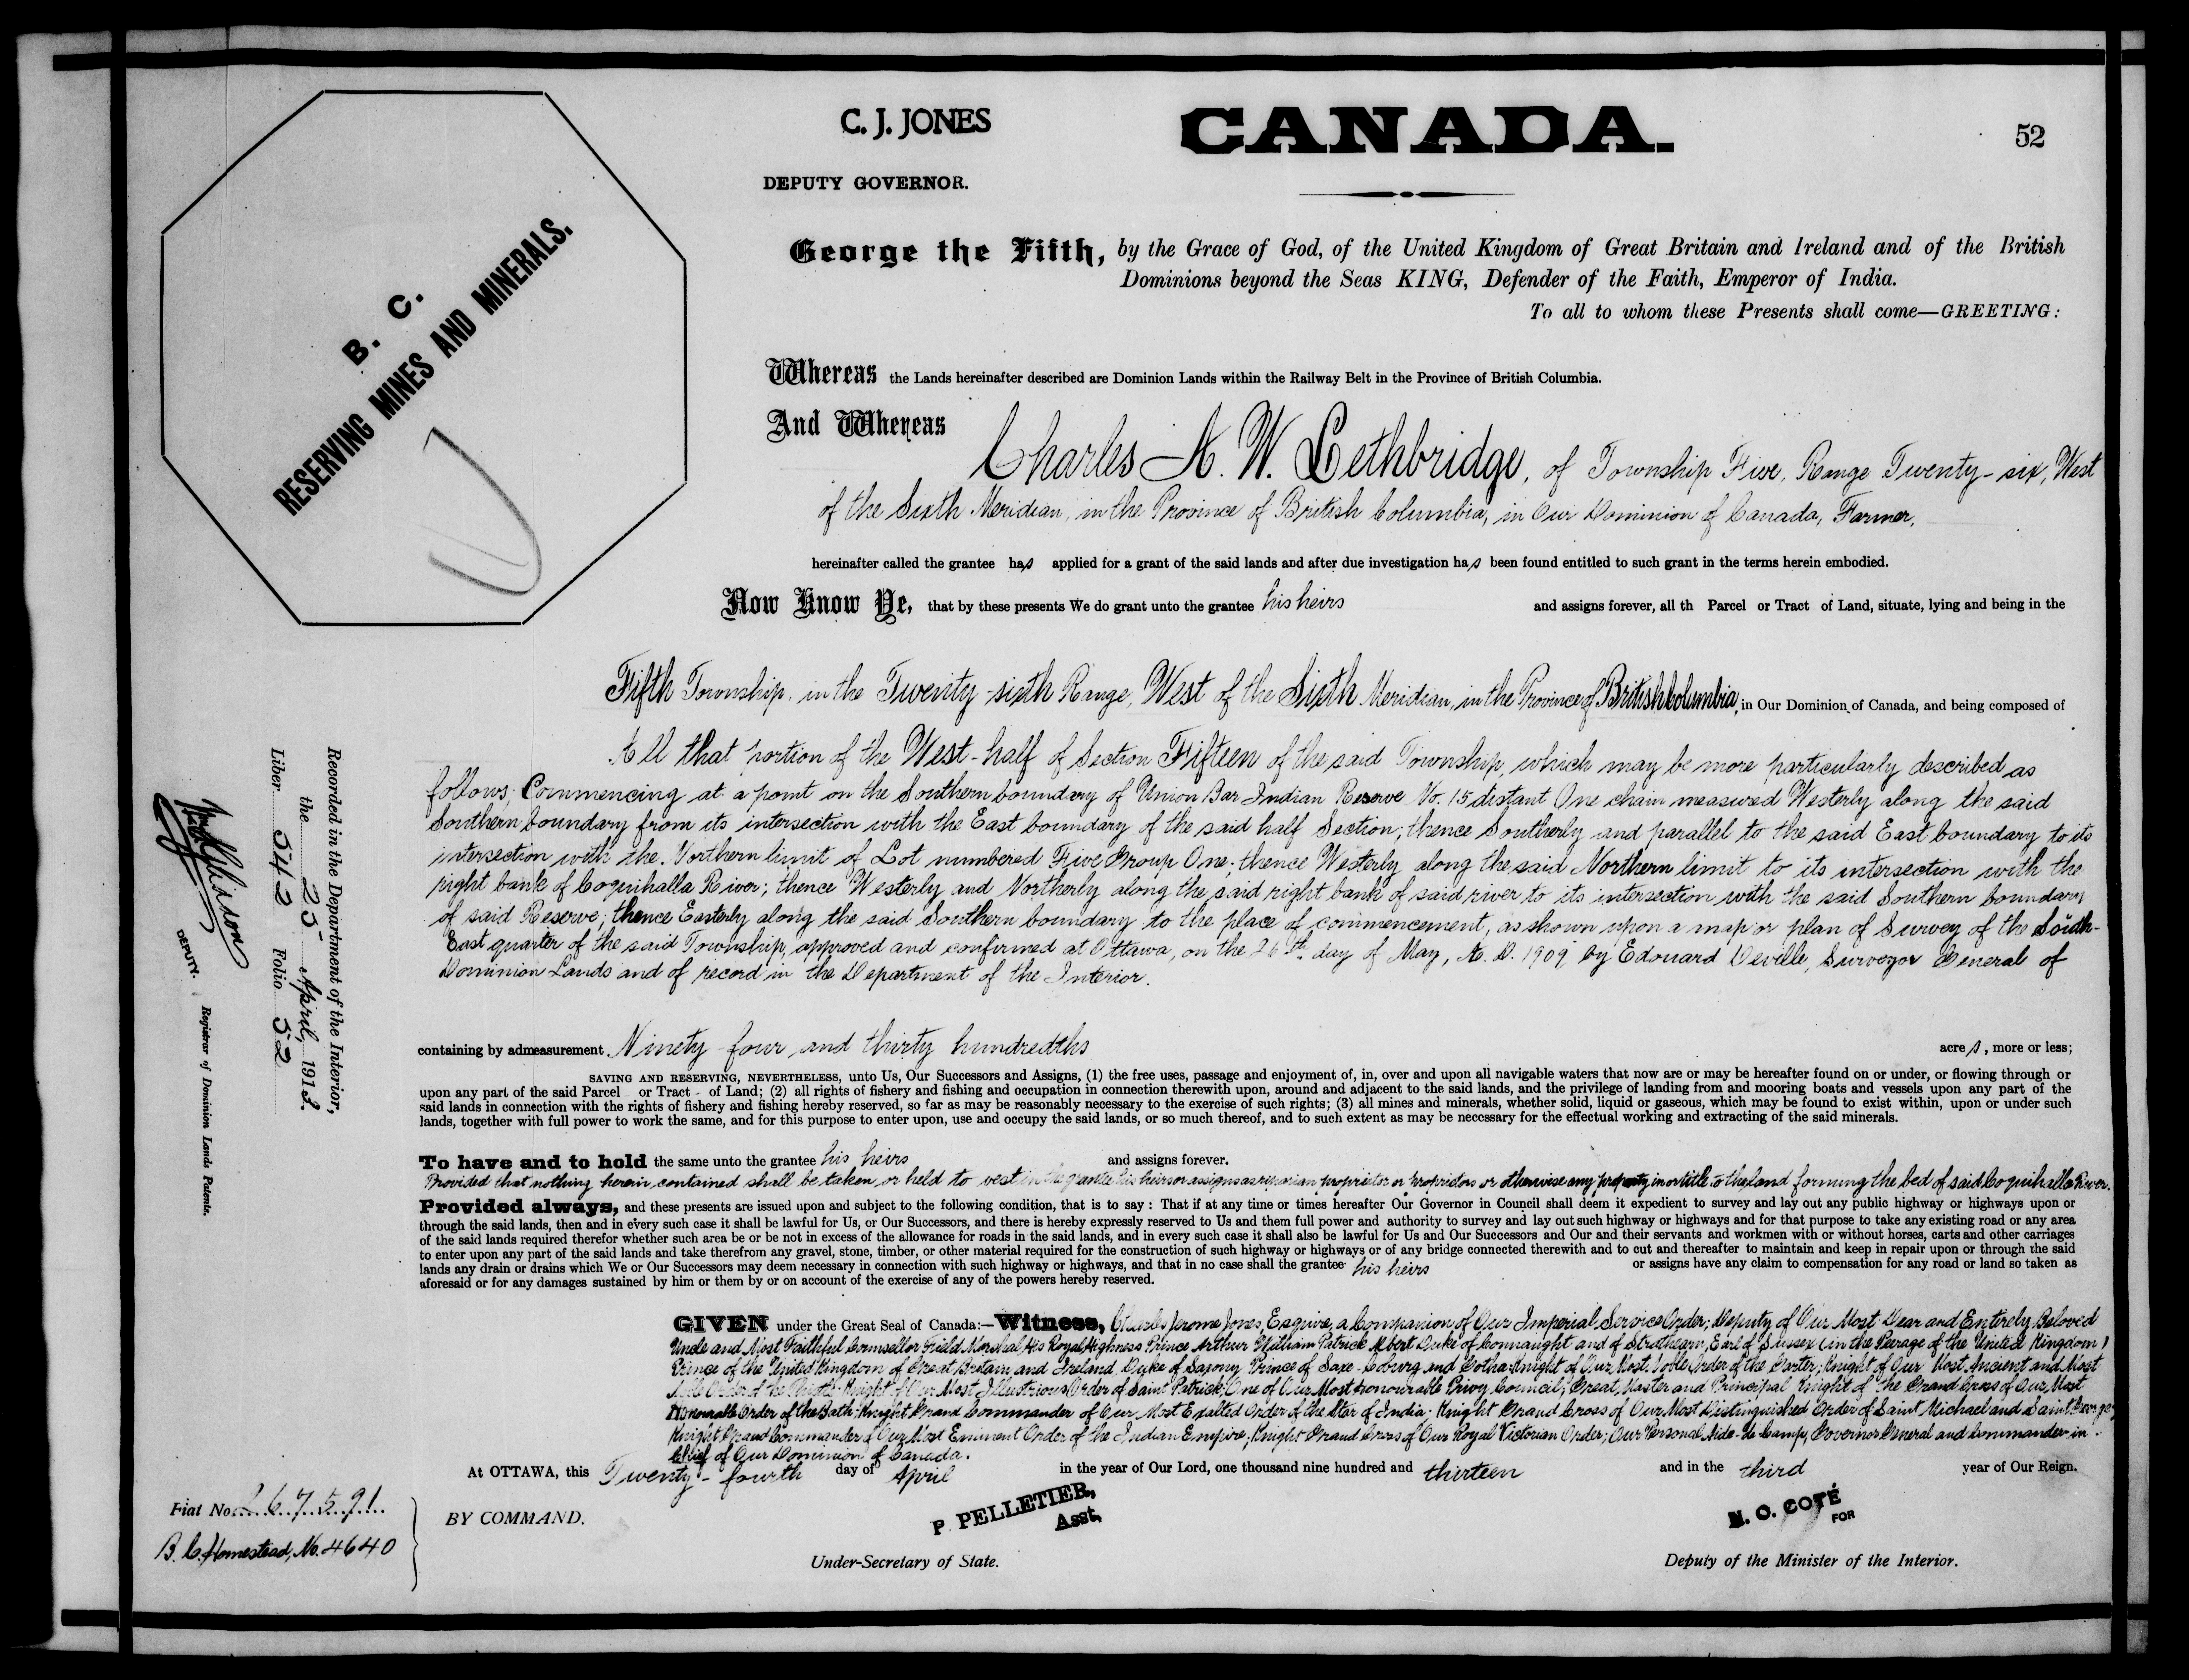 C. J. JONES
DEPUTY GOVERNOR.
CANADA.
52
B. C.
RESERVING MINES AND MINERALS.
George the Fifth, by the Grace of God, of the United Kingdom of Great Britain and Ireland and of the British
Dominions beyond the Seas KING, Defender of the Faith, Emperor of India.
To all to whom these Presents shall come—GREETING:
Whereas the Lands hereinafter described are Dominion Lands within the Railway Belt in the Province of British Columbia.
And Whereas
Charles A. W. Lethbridge, of Township Five, Range Twenty-six, West
of the Sixth Meridian, in the Province of British Columbia, in Our Dominion of Canada, Farmer,
hereinafter called the grantee has applied for a grant of the said lands and after due investigation has been found entitled to such grant in the terms herein embodied.
Now Know Ye, that by these presents We do grant unto the grantee his heirs and assigns forever, all th Parcel or Tract of Land, situate, lying and being in the
Fifth Township, in the Twenty-sixth Range, West of the Sixth Meridian, in the Province of British Columbia, in Our Dominion of Canada, and being composed of
All that portion of the West-half of Section Fifteen of the said Township, which may be more particularly described as
follows; Commencing at a point on the Southern boundary of Union Bar Indian Reserve No. 15 distant One chain measured Westerly along the said
Southern boundary from its intersection with the East boundary of the said half Section; thence Southerly and parallel to the said East boundary to its
intersection with the Northern limit of Lot numbered Five Group One; thence Westerly along the said Northern limit to its intersection with the
right bank of Coquihalla River; thence Westerly and Northerly along the said right bank of said river to its intersection with the said Southern boundary
of said Reserve; thence Easterly along the said Southern boundary to the place of commencement, as shown upon a map or plan of Survey of the South-
East quarter of the said Township, approved and confirmed at Ottawa, on the 26th day of May, A. D. 1909 by Edouard Deville, Surveyor General of
Dominion Lands and of record in the Department of the Interior.
containing by admeasurement Ninety-four and thirty hundredths acres, more or less;
SAVING AND RESERVING, NEVERTHELESS, unto Us, Our Successors and Assigns, (1) the free uses, passage and enjoyment of, in, over and upon all navigable waters that now are or may be hereafter found on or under, or flowing through or
upon any part of the said Parcel or Tract of Land; (2) all rights of fishery and fishing and occupation in connection therewith upon, around and adjacent to the said lands, and the privilege of landing from and mooring boats and vessels upon any part of the
said lands in connection with the rights of fishery and fishing hereby reserved, so far as may be reasonably necessary to the exercise of such rights; (3) all mines and minerals, whether solid, liquid or gaseous, which may be found to exist within, upon or under such
lands, together with full power to work the same, and for this purpose to enter upon, use and occupy the said lands, or so much thereof, and to such extent as may be necessary for the effectual working and extracting of the said minerals.
To have and to hold the same unto the grantee his heirs and assigns forever.
Provided that nothing herein contained shall be taken or held to vest in the grantee his heirs or assigns as riparian proprietor or proprietors or otherwise any property in or title to the land forming the bed of said Coquihalla River.
Provided always, and these presents are issued upon and subject to the following condition, that is to say: That if at any time or times hereafter Our Governor in Council shall deem it expedient to survey and lay out any public highway or highways upon or
through the said lands, then and in every such case it shall be lawful for Us, or Our Successors, and there is hereby expressly reserved to Us and them full power and authority to survey and lay out such highway or highways and for that purpose to take any existing road or any area
of the said lands required therefor whether such area be or be not in excess of the allowance for roads in the said lands, and in every such case it shall also be lawful for Us and Our Successors and Our and their servants and workmen with or without horses, carts and other carriages
to enter upon any part of the said lands and take therefrom any gravel, stone, timber, or other material required for the construction of such highway or highways or of any bridge connected therewith and to cut and thereafter to maintain and keep in repair upon or through the said
lands any drain or drains which We or Our Successors may deem necessary in connection with such highway or highways, and that in no case shall the grantee his heirs or assigns have any claim to compensation for any road or land so taken as
aforesaid or for any damages sustained by him or them by or on account of the exercise of any of the powers hereby reserved.
GIVEN under the Great Seal of Canada:—Witness, Charles Jerome Jones, Esquire, a Companion of Our Imperial Service Order; Deputy of Our Most Dear and Entirely Beloved
Uncle and Most Faithful Counsellor Field Marshal, His Royal Highness Prince Arthur William Patrick Albert Duke of Connaught and of Strathearn, Earl of Sussex (in the Peerage of the United Kingdom)
Prince of the United Kingdom of Great Britain and Ireland, Duke of Saxony, Prince of Saxe-Cobourg and Gotha; Knight of Our Most Noble Order of the Garter; Knight of Our Most Ancient and Most
Noble Order of the Thistle; Knight of Our Most Illustrious Order of Saint Patrick; One of Our Most honourable Privy Council; Great Master and Principal Knight of the Grand Cross of Our Most
Honourable Order of the Bath; Knight Grand Commander of Our Most Exalted Order of the Star of India; Knight Grand Cross of Our Most Distinguished Order of Saint Michael and Saint George;
Knight Grand Commander of Our Most Eminent Order of the Indian Empire; Knight Grand Cross of Our Royal Victorian Order; Our Personal Aide-de-Camp, Governor General and Commander in
Chief of Our Dominion of Canada.
At OTTAWA, this Twenty-fourth day of April in the year of Our Lord, one thousand nine hundred and thirteen and in the third year of Our Reign.
BY COMMAND.
P. PELLETIER,
Asst.
Under-Secretary of State.
N. O. COTÉ
FOR
Deputy of the Minister of the Interior.
Recorded in the Department of the Interior,
the 25 April, 1913.
Liber 542 Folio 52
DEPUTY.
Registrar of Dominion Lands Patents.
Fiat No. 267591
B. C. Homestead, No. 4640